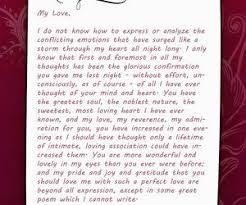 My Love,
I do not know how to express or analyze the
conflicting emotions that have surged like a
storm through my heart all night long. I only
know that first and foremost in all my
thoughts has been the glorious confirmation
you gave me last night - without effort, un-
consciously, as of course - of all I have ever
thought of your mind and heart. You have
the greatest soul, the noblest nature, the
sweetest, most loving heart I have ever
known, and my love, my reverence, my admi-
ration for you, you have increased in one even-
ing as I should have thought only a lifetime
of intimate, loving association could have in-
creased them. You are more wonderful and
lovely in my eyes than you ever were before;
and my pride and joy and gratitude that you
should love me with such a perfect love are
beyond all expression, except in some great
poem which I cannot write.